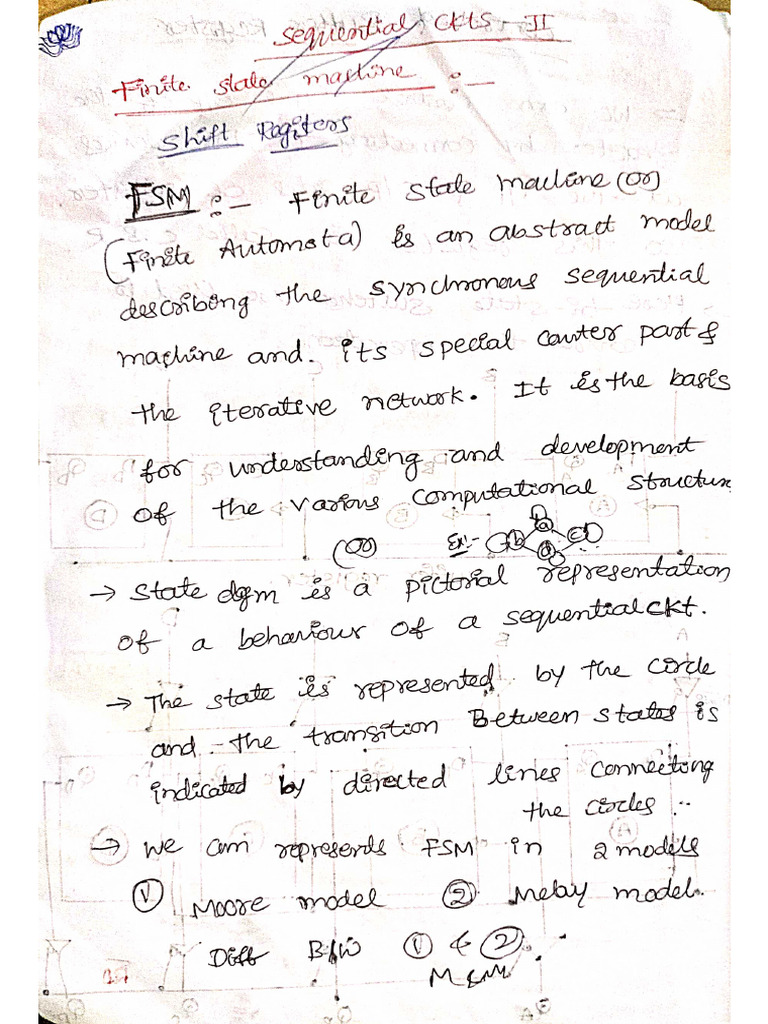 Sequential CKTS II
Finite state machine :-
Shift Registers
FSM :- Finite State Machine (or)
(Finite Automata) is an abstract model
describing the synchronous sequential
machine and. its special couter part &
the iterative network. It is the basis
for understanding and development
of the various computational structure
(or) Ex:- b a c d
→ State dgm is a pictorial representation
of a behaviour of a sequential CKt.
→ The state is represented by the circle
and the transition Between states is
indicated by directed lines connecting
the circles.
→ We can represends FSM in 2 models
① Moore model ② Melay model.
Diff B/W ① & ② :-
M & M